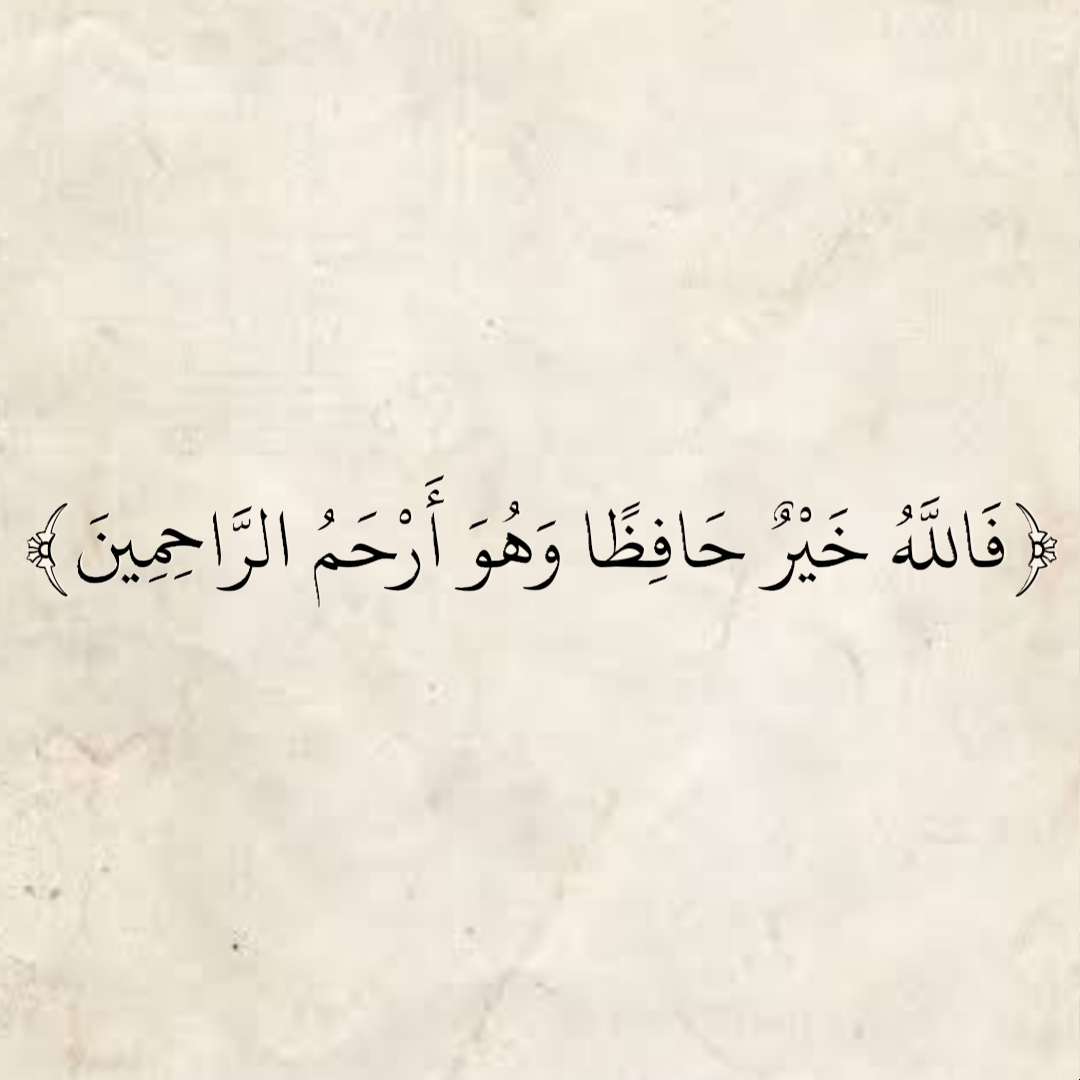 ﴿فَاللَّهُ خَيْرٌ حَافِظًا وَهُوَ أَرْحَمُ الرَّاحِمِينَ﴾